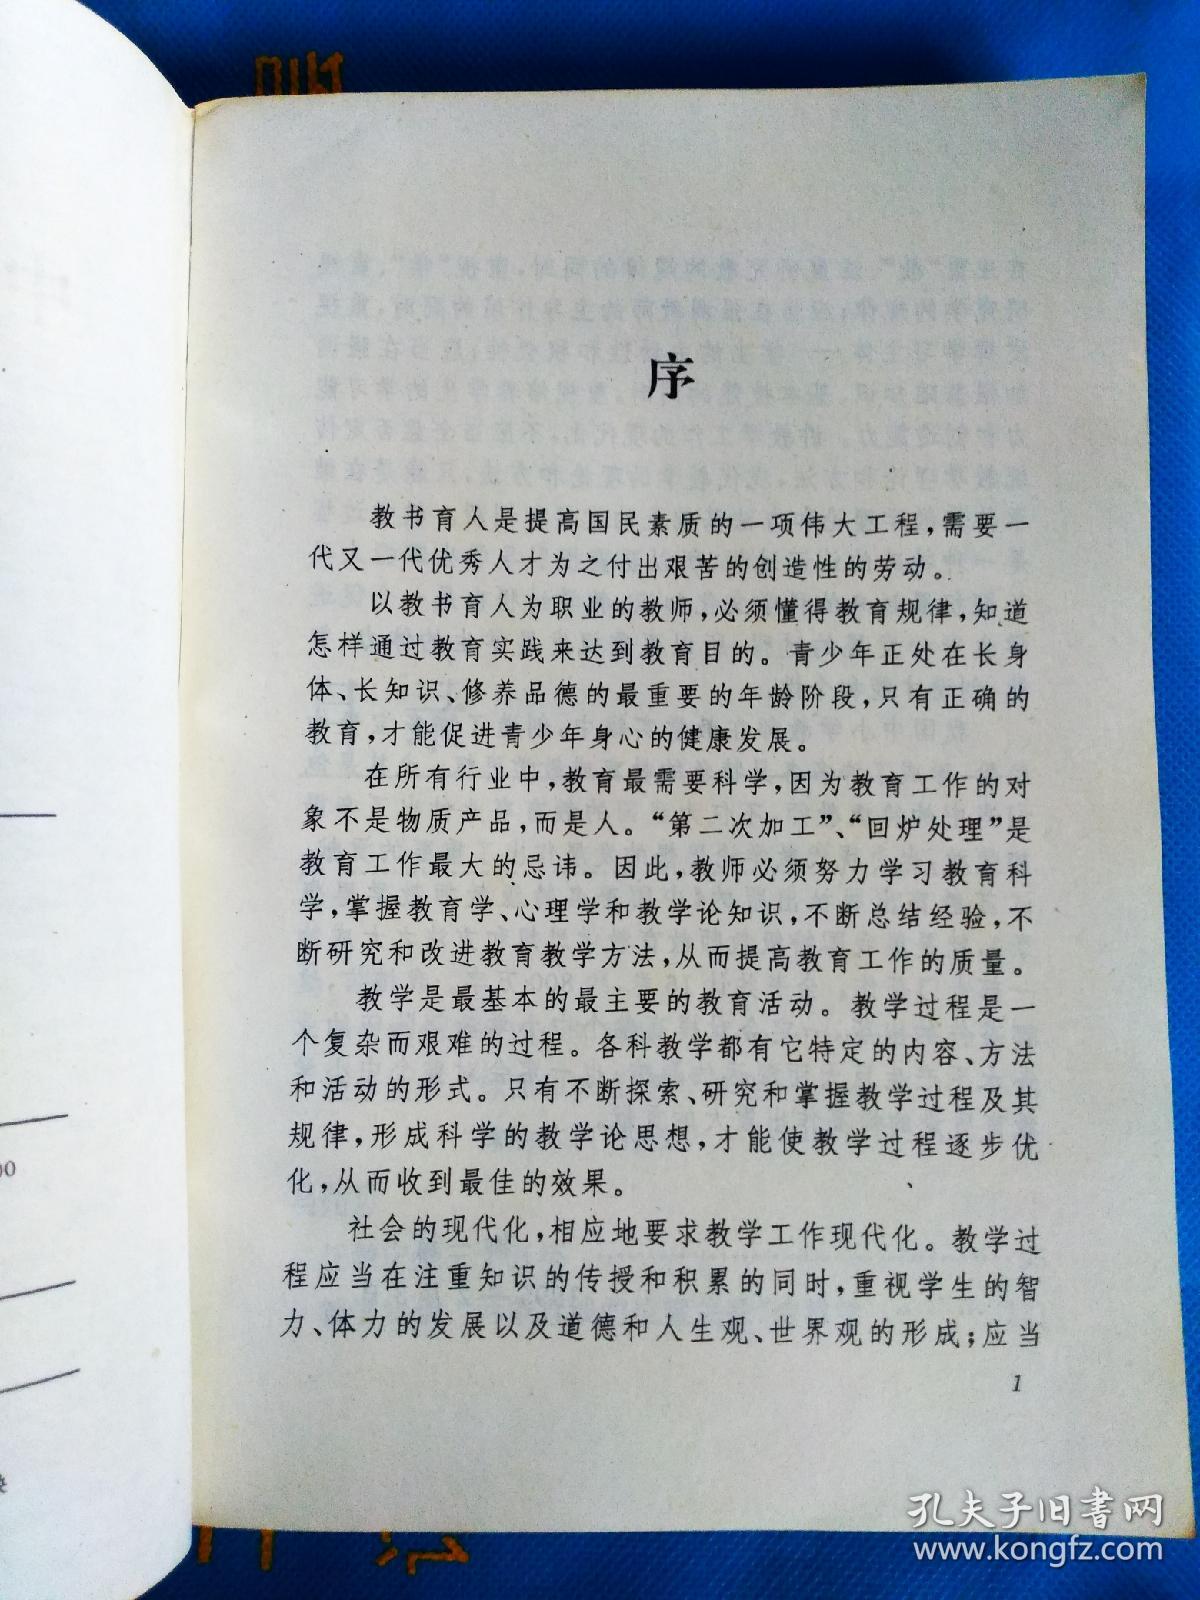 序
教书育人是提高国民素质的一项伟大工程,需要一
代又一代优秀人才为之付出艰苦的创造性的劳动。
以教书育人为职业的教师,必须懂得教育规律,知道
怎样通过教育实践来达到教育目的。青少年正处在长身
体、长知识、修养品德的最重要的年龄阶段,只有正确的
教育,才能促进青少年身心的健康发展。
在所有行业中,教育最需要科学,因为教育工作的对
象不是物质产品,而是人。“第二次加工”、“回炉处理”是
教育工作最大的忌讳。因此,教师必须努力学习教育科
学,掌握教育学、心理学和教学论知识,不断总结经验,不
断研究和改进教育教学方法,从而提高教育工作的质量。
教学是最基本的最主要的教育活动。教学过程是一
个复杂而艰难的过程。各科教学都有它特定的内容、方法
和活动的形式。只有不断探索、研究和掌握教学过程及其
规律,形成科学的教学论思想,才能使教学过程逐步优
化,从而收到最佳的效果。
社会的现代化,相应地要求教学工作现代化。教学过
程应当在注重知识的传授和积累的同时,重视学生的智
力、体力的发展以及道德和人生观、世界观的形成;应当
1
孔夫子旧书网
www.kongfz.com